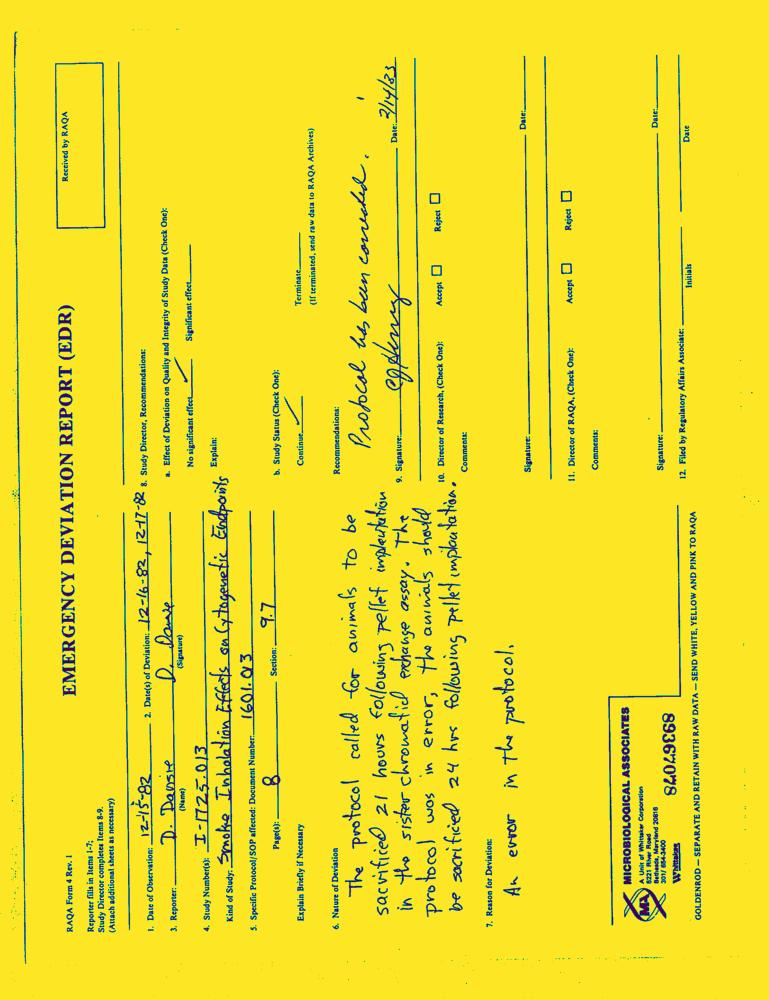 RAQA Form 4 Rev. 1
EMERGENCY DEVIATION REPORT (EDR)
Received by RAQA
Reporter fills in Items 1-7;
Study Director completes Items 8-9.
(Attach additional sheets as necessary)
1. Date of Observation: 12-15-82 2. Date(s) of Deviation: 12-16-82, 12-17-82
3. Reporter: D. D
(Name) (Signature)
4. Study Number(s): I-1725.013
Kind of Study: Smoke Inhalation Effects on Cytogenetic Endpoints
5. Specific Protocol/SOP affected: Document Number: 1601.013
Page(s): 8 Section: 9.7
Explain Briefly if Necessary
6. Nature of Deviation
The protocol called for animals to be
sacrificed 21 hours following pellet implantation
in the sister chromatid exchange assay. The
protocol was in error, the animals should
be sacrificed 24 hrs following pellet implantation.
7. Reason for Deviation:
An error in the protocol.
8. Study Director, Recommendations:
a. Effect of Deviation on Quality and Integrity of Study Data (Check One):
No significant effect ✓ Significant effect
Explain:
b. Study Status (Check One):
Continue ✓ Terminate
(If terminated, send raw data to RAQA Archives)
Recommendations:
Protocol has been corrected.
9. Signature: CJHenry Date: 2/14/83
10. Director of Research, (Check One): Accept ☐ Reject ☐
Comments:
Signature: Date:
11. Director of RAQA, (Check One): Accept ☐ Reject ☐
Comments:
Signature: Date:
12. Filed by Regulatory Affairs Associate:
Initials Date
MA
MICROBIOLOGICAL ASSOCIATES
A Unit of Whittaker Corporation
5221 River Road
Bethesda, Maryland 20816
301/ 654-3400
Whittaker
89367078
GOLDENROD — SEPARATE AND RETAIN WITH RAW DATA — SEND WHITE, YELLOW AND PINK TO RAQA